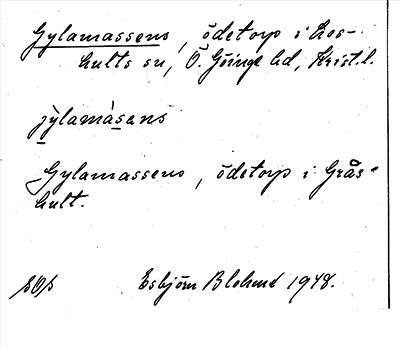 Gylamassens, ödetorp i Los-
hults sn, Ö. Göinge hd, Krist. l.
jỳlamàsens
Gylamassens, ödetorp i Grås-
hult.
sOs Esbjörn Blohmé 1948.